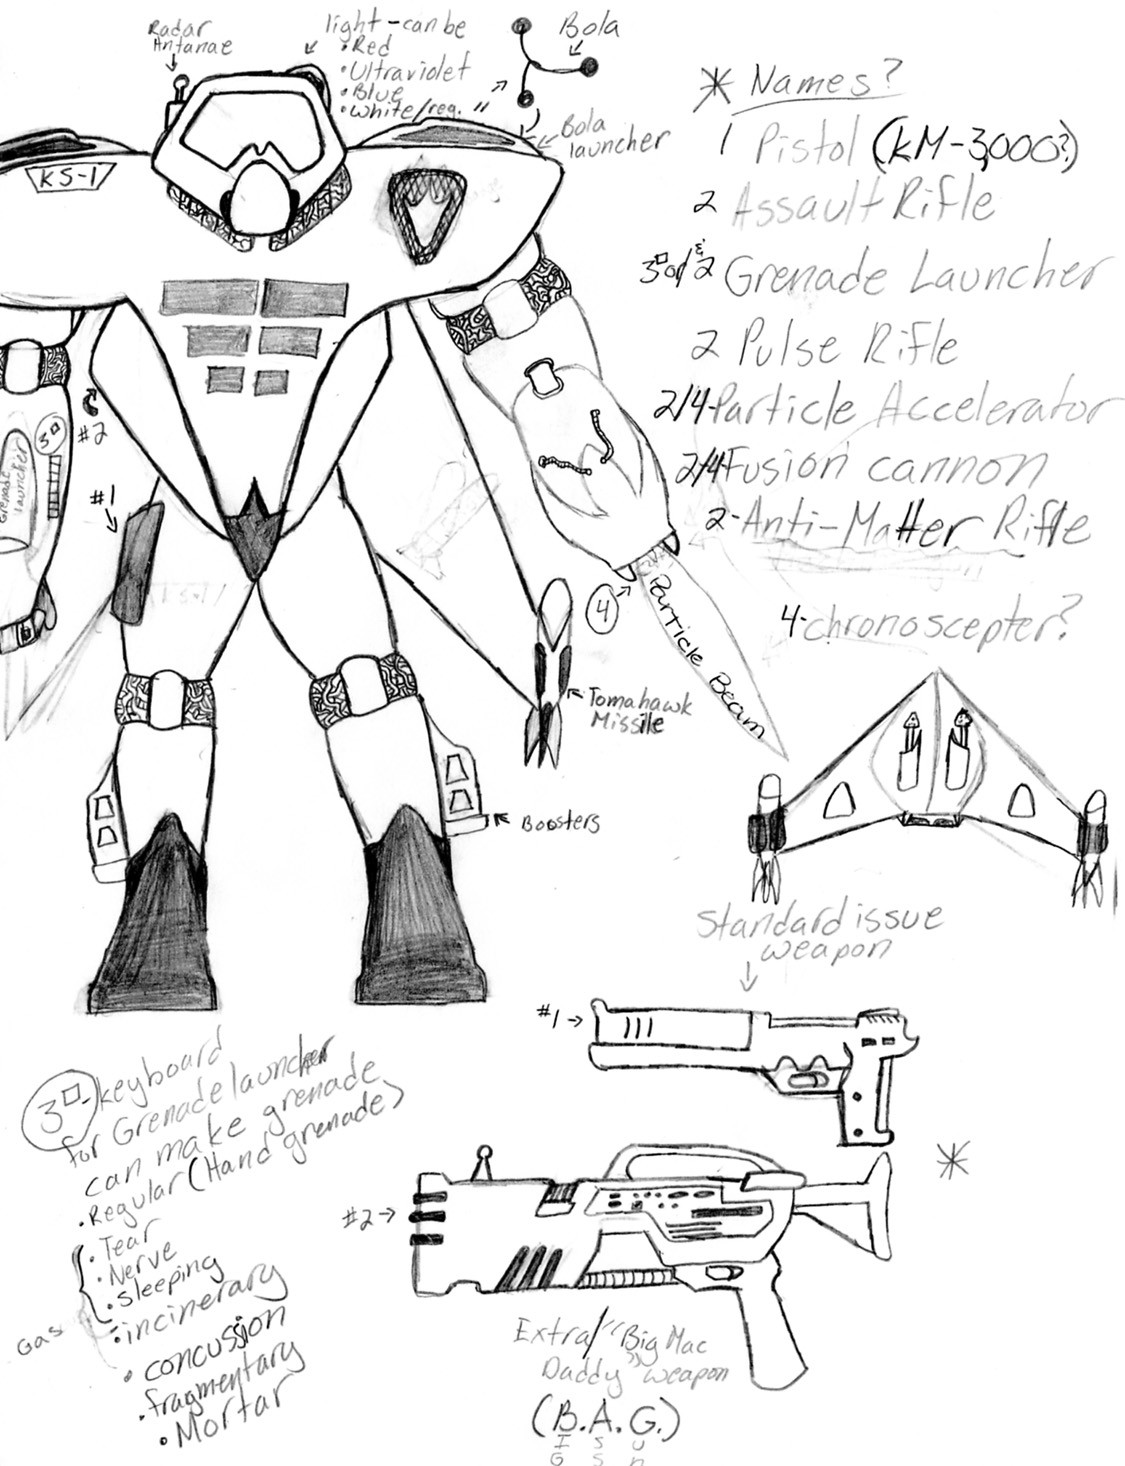 Radar
Antanae
light-can be
• Red
• Ultraviolet
• Blue
• White/reg.
Bola
Bola
launcher
KS-1
* Names?
1 Pistol (KM-3,000?)
2 Assault Rifle
3□ or/&2 Grenade Launcher
2 Pulse Rifle
2/4-Particle Accelerator
2/4-Fusion cannon
2-Anti-Matter Rifle
4-chronoscepter?
#2
3□
Grenade
launcher
#1
4
Particle Beam
Tomahawk
Missile
Boosters
Standard issue
weapon
#1
#2
Extra/"Big Mac
Daddy" weapon
(B.A.G.)
I S U
G S n
3□-keyboard
for Grenade launcher
can make grenade
• Regular (Hand grenade)
• Tear
• Nerve
• Sleeping
Gas
• incinerary
• concussion
• fragmentary
• Mortar